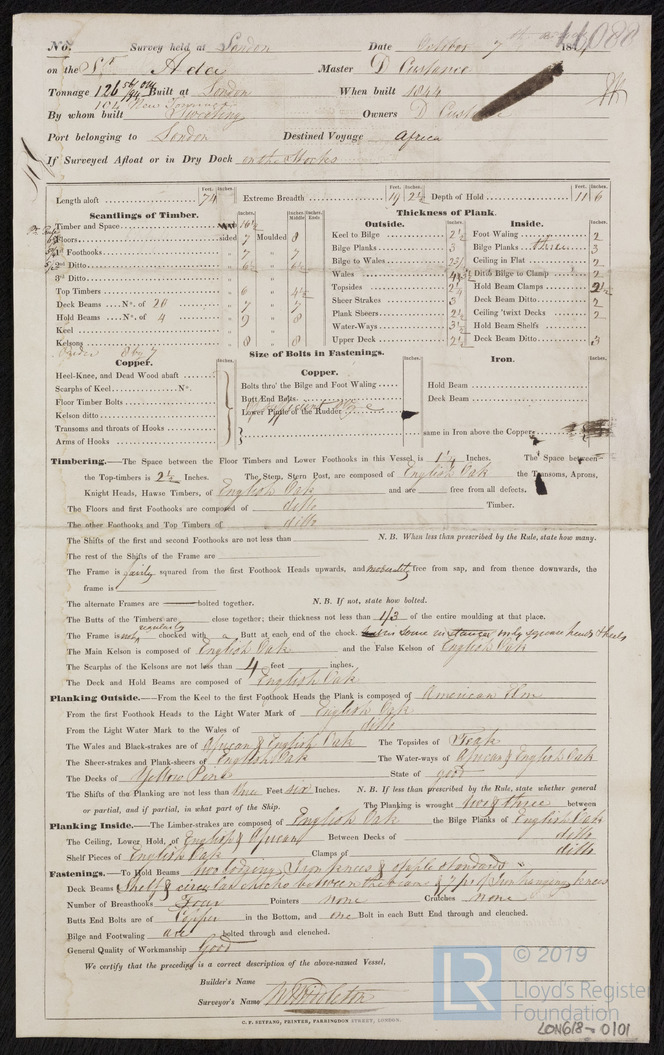 No. Survey held at London Date October 7th 1844 11088
on the Sr Ada Master D Custance
Tonnage 126 Old Built at London When built 1844
104 New Tonnage
By whom built Owners D Custance
Port belonging to London Destined Voyage Africa
If Surveyed Afloat or in Dry Dock on the Stocks
Length aloft Feet. 74 Inches. Extreme Breadth Feet. 19 Inches. 2½ Depth of Hold Feet. 11 Inches. 6
Scantlings of Timber.
Timber and Space 16½
Floors sided 7 Moulded 8
1st Foothooks 7 7
2nd Ditto 6½ 6½
3rd Ditto
Top Timbers 6 4½
Deck Beams No. of 20 7 7
Hold Beams No. of 4 9 8
Keel
Kelsons 8 8
Thickness of Plank.
Outside.
Keel to Bilge 2½
Bilge Planks 3
Bilge to Wales 2¾
Wales
Topsides 2¼
Sheer Strakes 3
Plank Sheers 2½
Water-Ways 3½
Upper Deck 2½
Inside.
Foot Waling 2
Bilge Planks three 3
Ceiling in Flat 2
Ditto Bilge to Clamp 2
Hold Beam Clamps 2½
Deck Beam Ditto 2
Ceiling 'twixt Decks 2
Hold Beam Shelfs
Deck Beam Ditto 3
Size of Bolts in Fastenings.
Copper.
Heel-Knee, and Dead Wood abaft
Scarphs of Keel No.
Floor Timber Bolts
Kelson ditto
Transoms and throats of Hooks
Arms of Hooks
Copper.
Bolts thro' the Bilge and Foot Waling
Butt End Bolts
Lower Pintle of the Rudder
Iron.
Hold Beam
Deck Beam
same in Iron above the Copper
Timbering.—The Space between the Floor Timbers and Lower Foothooks in this Vessel is 1¼ Inches. The Space between
the Top-timbers is 2½ Inches. The Stem, Stern Post, are composed of English Oak the Transoms, Aprons,
Knight Heads, Hawse Timbers, of English Oak and are free from all defects.
The Floors and first Foothooks are composed of ditto Timber.
The other Foothooks and Top Timbers of ditto
The Shifts of the first and second Foothooks are not less than N.B. When less than prescribed by the Rule, state how many.
The rest of the Shifts of the Frame are
The Frame is fairly squared from the first Foothook Heads upwards, and moderately free from sap, and from thence downwards, the
frame is
The alternate Frames are bolted together. N.B. If not, state how bolted.
The Butts of the Timbers are close together; their thickness not less than 1/3 of the entire moulding at that place.
The Frame is not regularly chocked with a Butt at each end of the chock. in some instances only square heads & heels
The Main Kelson is composed of English Oak and the False Kelson of English Oak
The Scarphs of the Kelsons are not less than 4 feet inches.
The Deck and Hold Beams are composed of English Oak
Planking Outside.—From the Keel to the first Foothook Heads the Plank is composed of American Elm
From the first Foothook Heads to the Light Water Mark of English Oak
From the Light Water Mark to the Wales of ditto
The Wales and Black-strakes are of African & English Oak The Topsides of Teak
The Sheer-strakes and Plank-sheers of English Oak The Water-ways of African & English Oak
The Decks of Yellow Pine State of good
The Shifts of the Planking are not less than three Feet six Inches. N.B. If less than prescribed by the Rule, state whether general
or partial, and if partial, in what part of the Ship. The Planking is wrought two & three between
Planking Inside.—The Limber-strakes are composed of English Oak the Bilge Planks of English Oak
The Ceiling, Lower Hold, of English & African Between Decks of ditto
Shelf Pieces of English Oak Clamps of ditto
Fastenings.—To Hold Beams two lodging Iron knees & staple standards
Deck Beams Shelf & circular chocks between the beams & prs of Iron hanging knees
Number of Breasthooks Four Pointers none Crutches none
Butts End Bolts are of Copper in the Bottom, and one Bolt in each Butt End through and clenched.
Bilge and Footwaling are bolted through and clenched.
General Quality of Workmanship good
We certify that the preceding is a correct description of the above-named Vessel,
Builder's Name
Surveyor's Name W Middleton
C. F. SEYFANG, PRINTER, FARRINGDON STREET, LONDON.
LR © 2019
Lloyd's Register
Foundation
LON618-0101